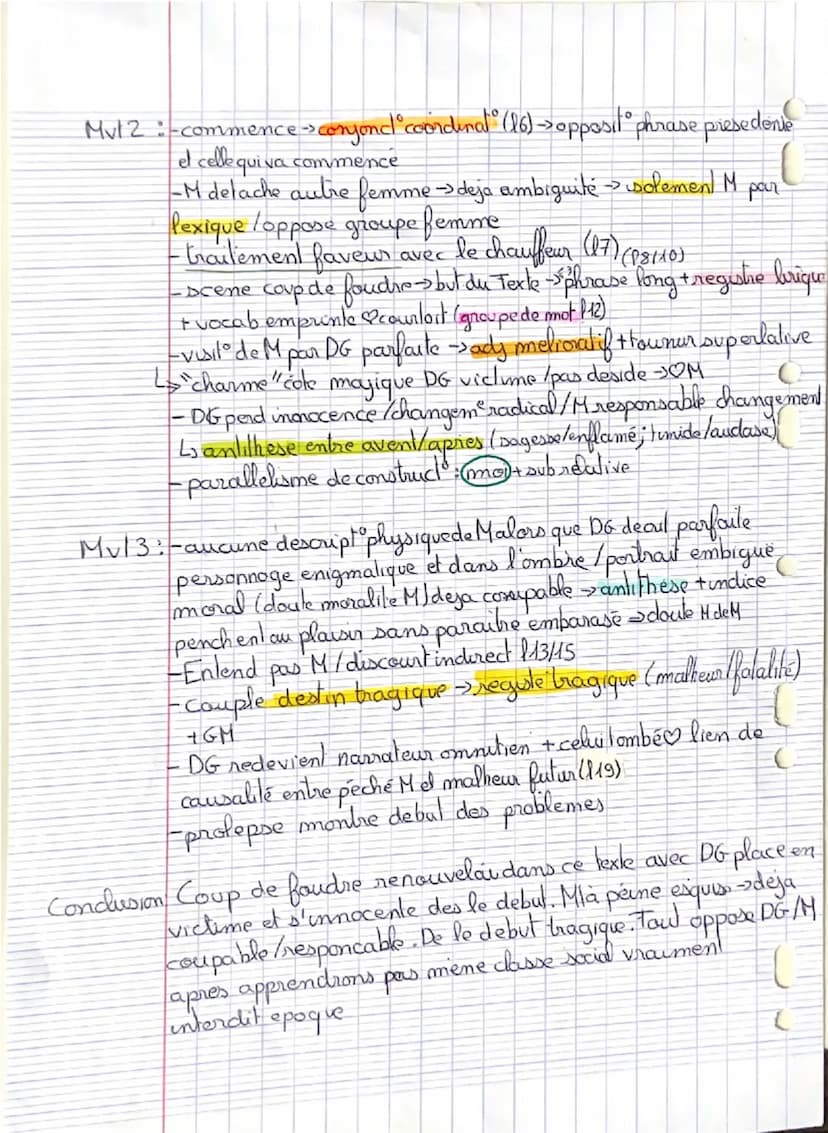 Mvt2 :-commence→conjonct° coordinat° (l6)→opposit° phrase presedente
et celle qui va commencé
-M detache autre femme→deja ambiguité→isolement M par
lexique/oppose groupe femme
-traitement faveur avec le chauffeur (l7) (l8/10)
-scene coup de foudre→but du Texte→phrase long+registre lirique
+vocab emprinte ♡courtoit (groupe de mot l12)
-visit° de M par DG parfaite→adj melioratif+tournur superlative
↳"charme" côté magique DG victime/pas deside→♡M
-DG perd innocence/changemᵉ radical/M responsable changement
↳antithese entre avent/apres (sagesse/enflamé; timide/audase)
-parallelisme de construct° : moi+sub relative
Mvt3:-aucune descript° physique de M alors que DG decrit parfaite
personnage enigmatique et dans l'ombre/portrait embigue
moral (doute moralite M) deja coupable→antithese+indice
penchent au plaisir sans paraitre embarasé⇒doute M de M
-Entend pas M/discourt indirect l13/15
-Couple destin tragique→registe tragique (malheur/fatalité)
+GM
-DG redevient narrateur omnitien+celui tombé♡ lien de
causalité entre péché M et malheur futur (l19)
-prolepse montre debut des problemes
Conclusion Coup de foudre renouvelai dans ce texte avec DG place en
victime et s'innocente des le debut. M à peine esquiss→déja
coupable/responcable. De le debut tragique. Tout oppose DG/M
apres apprendrons pas mème classe social vraiment
interdit epoque